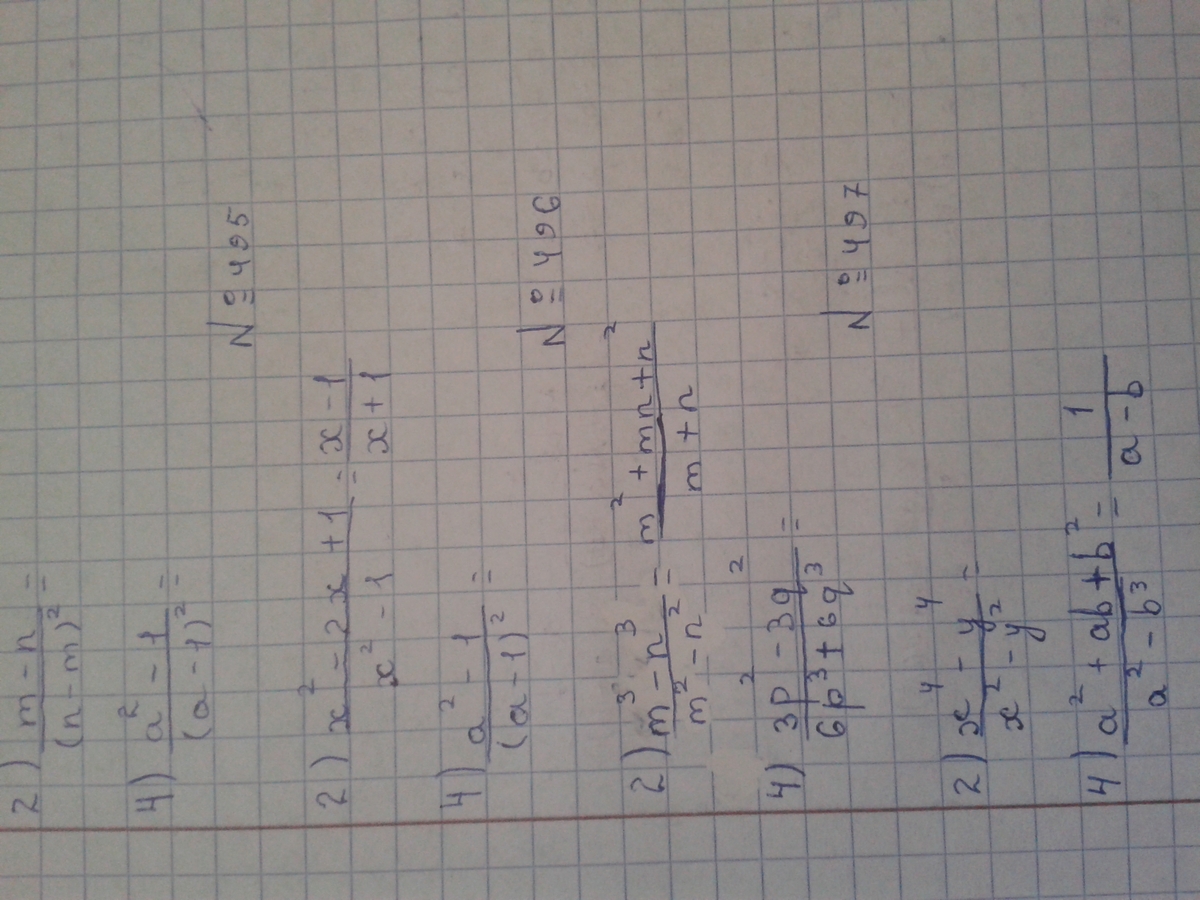 2) (m - n)/(n - m)² =
4) (a² - 1)/(a - 1)² =
№ 495
2) (x² - 2x + 1)/(x² - 1) = (x - 1)/(x + 1)
4) (a² - 1)/(a - 1)² =
№ 496
2) (m³ - n³)/(m² - n²) = (m² + mn + n²)/(m + n)
4) (3p² - 3q²)/(6p³ + 6q³) =
№ 497
2) (x⁴ - y⁴)/(x² - y²) =
4) (a² + ab + b²)/(a² - b³) = 1/(a - b)